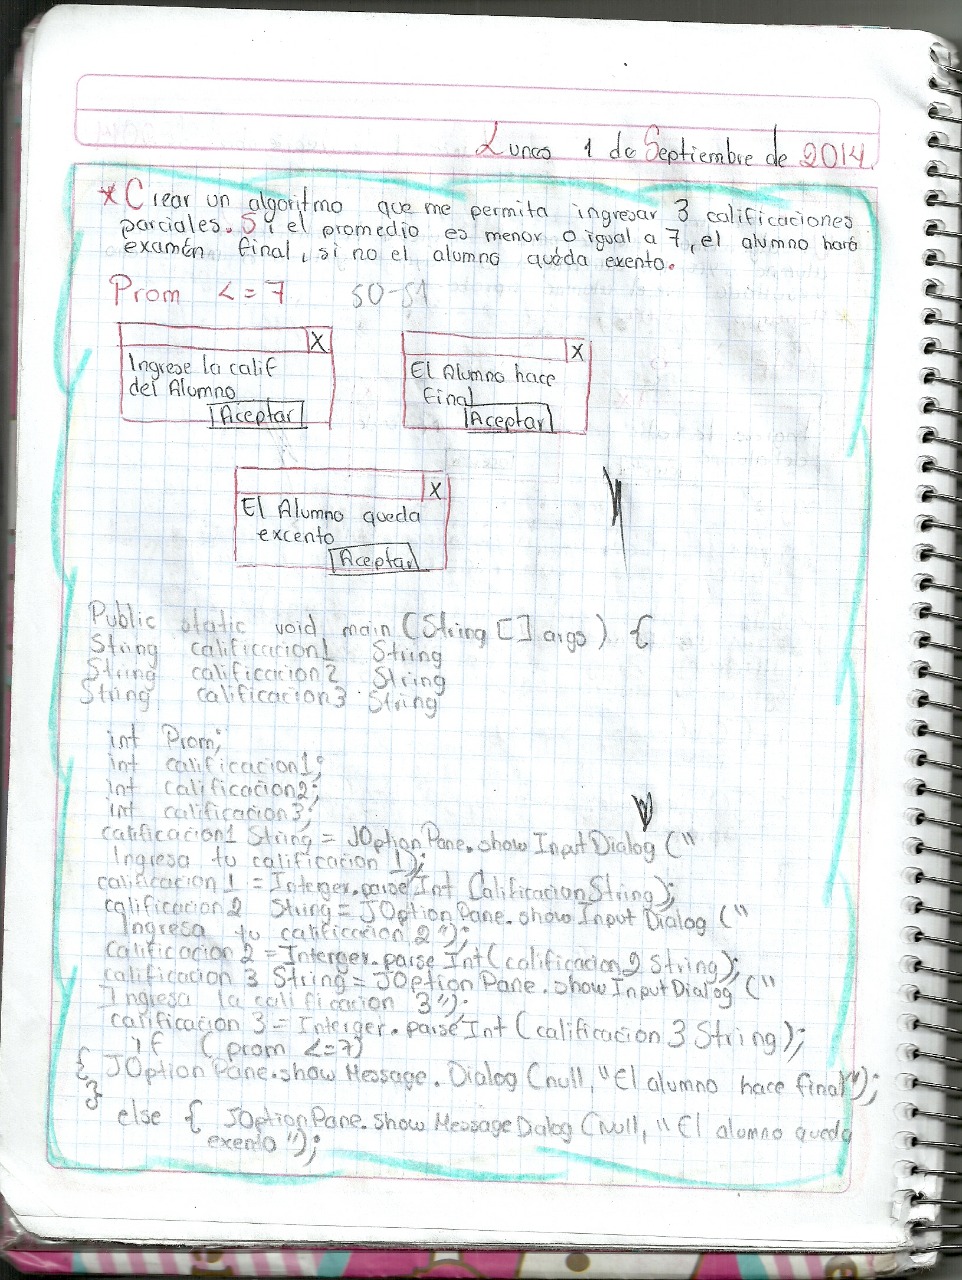 Lunes 1 de Septiembre de 2014
* Crear un algoritmo que me permita ingresar 3 calificaciones
parciales. Si el promedio es menor o igual a 7, el alumno hará
examén final, si no el alumno quéda exento.
Prom <=7 50-51
X
Ingrese la calif
del Alumno
Aceptar
X
El Alumno hace
final
Aceptar
X
El Alumno queda
excento
Aceptar
Public static void main (String [] args) {
String calificacion1 String
String calificacion2 String
String calificacion3 String
int Prom;
int calificacion1;
int calificacion2;
int calificacion3;
calificacion1 String = JOptionPane.show InputDialog ("
Ingresa tu calificacion 1);
calificacion 1 = Interger.parse Int (CalificacionString);
calificacion 2 String = JOptionPane.show Input Dialog ("
Ingresa tu calificacion 2");
Calificacion 2 = Interger.parse Int (calificacion 2 String);
calificacion 3 String = JOption Pane.show InputDialog ("
Ingresa la calificacion 3");
calificacion 3 = Interger.parse Int (calificacion 3 String);
if (prom <=7)
{ JOption Pane.show Message.Dialog (null, "El alumno hace final");
}
else { JOptionPane.show MessageDalog (Null, "El alumno queda
exento");